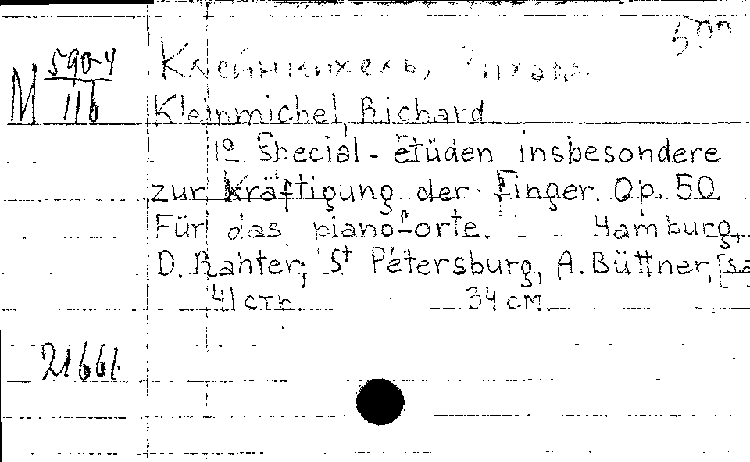 500
М 590-4
116
Клейнмихель, Рихард.
Kleinmichel, Richard
10 Special-etüden insbesondere
zur Kräftigung der Finger. Op. 50.
Für das pianoforte. Hamburg,
D. Rahter; St Petersburg, A. Büttner, [sa
41 стр. 34 см
21661